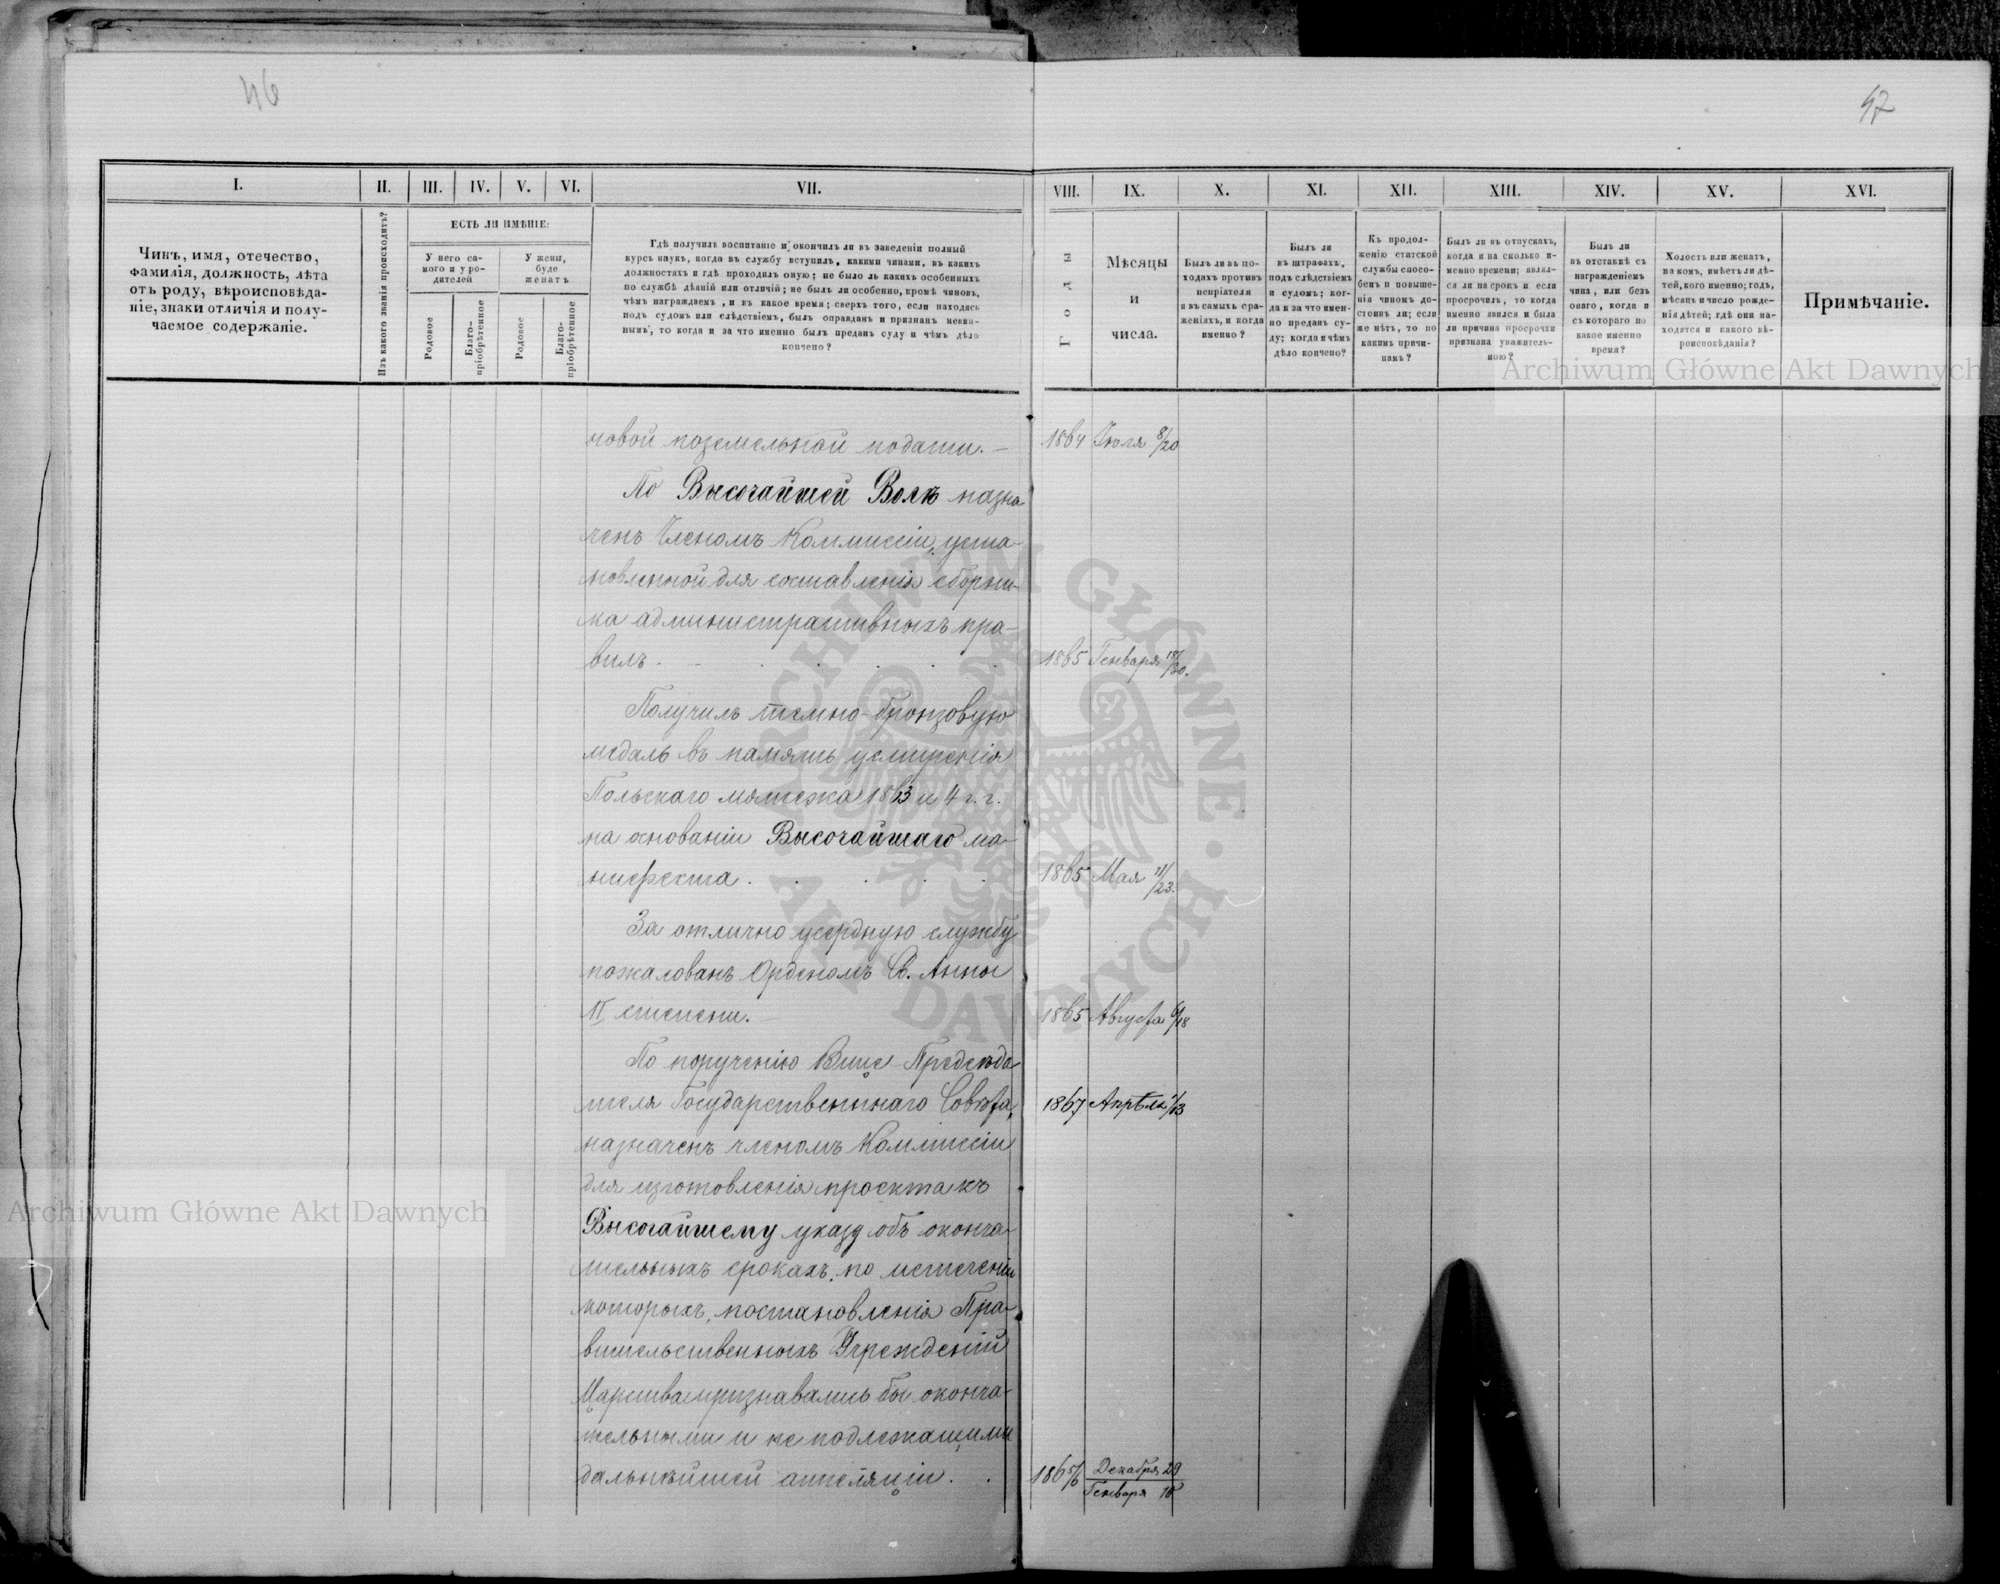 46
47
I.
II.
III.
IV.
V.
VI.
VII.
VIII.
IX.
X.
XI.
XII.
XIII.
XIV.
XV.
XVI.
Чинъ, имя, отечество,
фамилія, должность, лѣта
отъ роду, вѣроисповѣда-
ніе, знаки отличія и полу-
чаемое содержаніе.
Изъ какого званія происходитъ?
ЕСТЬ ЛИ ИМѢНІЕ:
У него са-
мого и у ро-
дителей
У жены,
буде
женатъ
Родовое
Благо-
пріобрѣтенное
Родовое
Благо-
пріобрѣтенное
Гдѣ получилъ воспитаніе и окончилъ ли въ заведеніи полный
курсъ наукъ, когда въ службу вступилъ, какими чинами, въ какихъ
должностяхъ и гдѣ проходилъ оную; не было ль какихъ особенныхъ
по службѣ дѣяній или отличій; не былъ ли особенно, кромѣ чиновъ,
чѣмъ награждаемъ, и въ какое время; сверхъ того, если находясь
подъ судомъ или слѣдствіемъ, былъ оправданъ и признанъ невин-
нымъ, то когда и за что именно былъ преданъ суду и чѣмъ дѣло
кончено?
Годы
Мѣсяцы
и
числа.
Былъ ли въ по-
ходахъ противъ
непріятеля
и въ самыхъ сра-
женіяхъ, и когда
именно?
Былъ ли
въ штрафахъ,
подъ слѣдствіемъ
и судомъ; ког-
да и за что имен-
но преданъ су-
ду; когда и чѣмъ
дѣло кончено?
Къ продол-
женію статской
службы спосо-
бенъ и повыше-
нія чиномъ до-
стоинъ ли; если
же нѣтъ, то по
какимъ причи-
намъ?
Былъ ли въ отпускахъ,
когда и на сколько и-
менно времени; являл-
ся ли на срокъ и если
просрочилъ, то когда
именно явился и была
ли причина просрочки
признана уважитель-
ною?
Былъ ли
въ отставкѣ съ
награжденіемъ
чина, или безъ
онаго, когда и
съ котораго по
какое именно
время?
Холостъ или женатъ,
на комъ, имѣетъ ли дѣ-
тей, кого именно; годъ,
мѣсяцъ и число рожде-
нія дѣтей; гдѣ они на-
ходятся и какого вѣ-
роисповѣданія?
Примѣчаніе.
Archiwum Główne Akt Dawnych
новой поземельной подати. — 1864 Іюля 8/20
По Высочайшей Волѣ назна
ченъ Членомъ Коммиссіи, уста-
новленной для составленія сборни-
ка административныхъ пра-
вилъ. 1865 Генваря 18/30.
Получилъ темно-бронзовую
медаль въ память усмиренія
Польскаго мятежа 1863 и 4 г. г.
на основаніи Высочайшаго ма-
нифеста. 1865 Мая 11/23.
За отлично усердную службу
пожалованъ Орденомъ Св. Анны
II степени. — 1865 Августа 6/18
По порученію Вице-Предсѣда
теля Государственнаго Совѣта, 1867 Апрѣля 1/13
назначенъ членомъ Коммиссіи
для изготовленія проекта къ
Высочайшему указу объ оконча-
тельныхъ срокахъ, по истеченіи
которыхъ, постановленія Пра-
вительственныхъ Учрежденій
Царства признавались бы оконча-
тельными и не подлежащими
дальнѣйшей аппеляціи. 1865/6 Декабря 29
Генваря 10
Archiwum Główne Akt Dawnych
ARCHIWUM GŁÓWNE • AKT DAWNYCH •